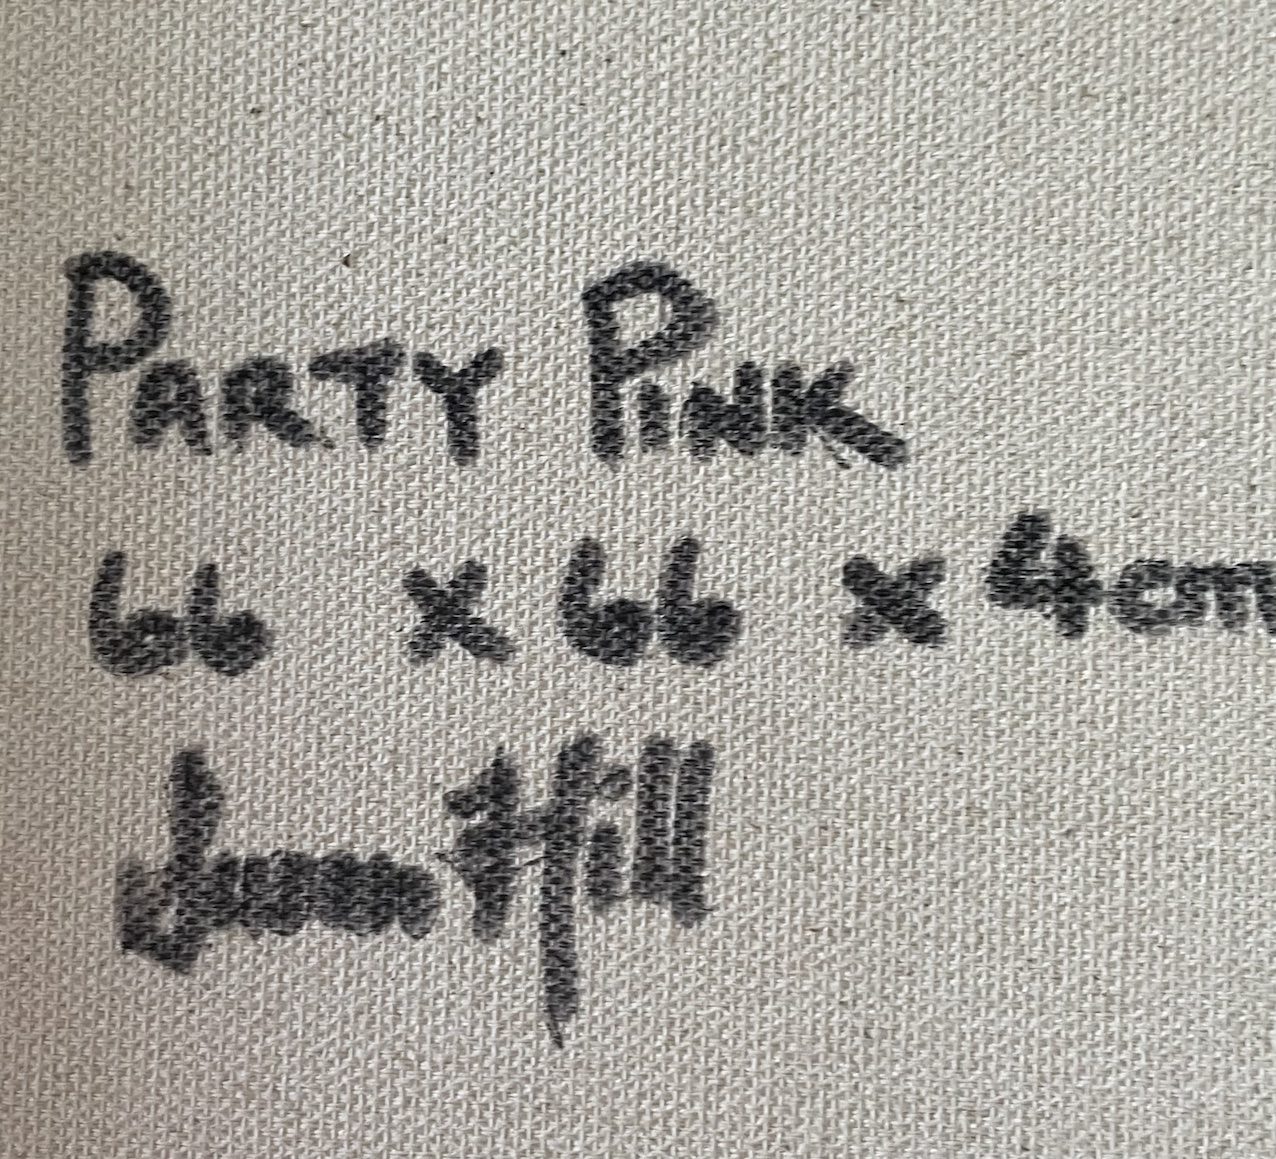 PARTY PINK
66 x 66 x 4cm
Hill